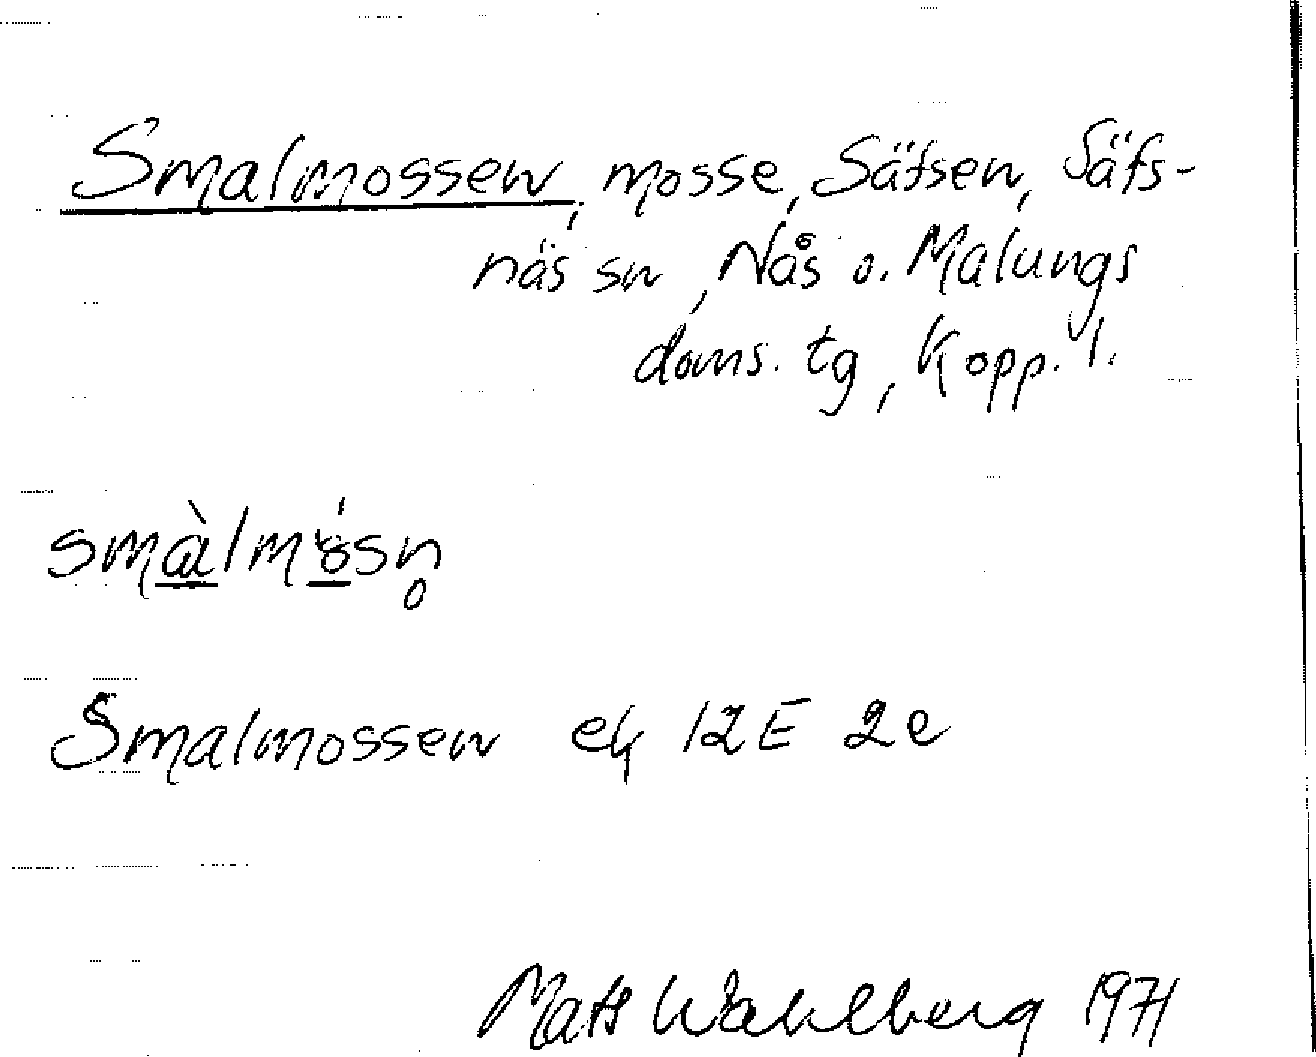 Smalmossen, mosse, Säfsen, Säfs-
näs sn, Nås o. Malungs
doms. tg, Kopp. l.
smàlmósn̥
Smalmossen ek 12E 2e
Mats Wahlberg 1971